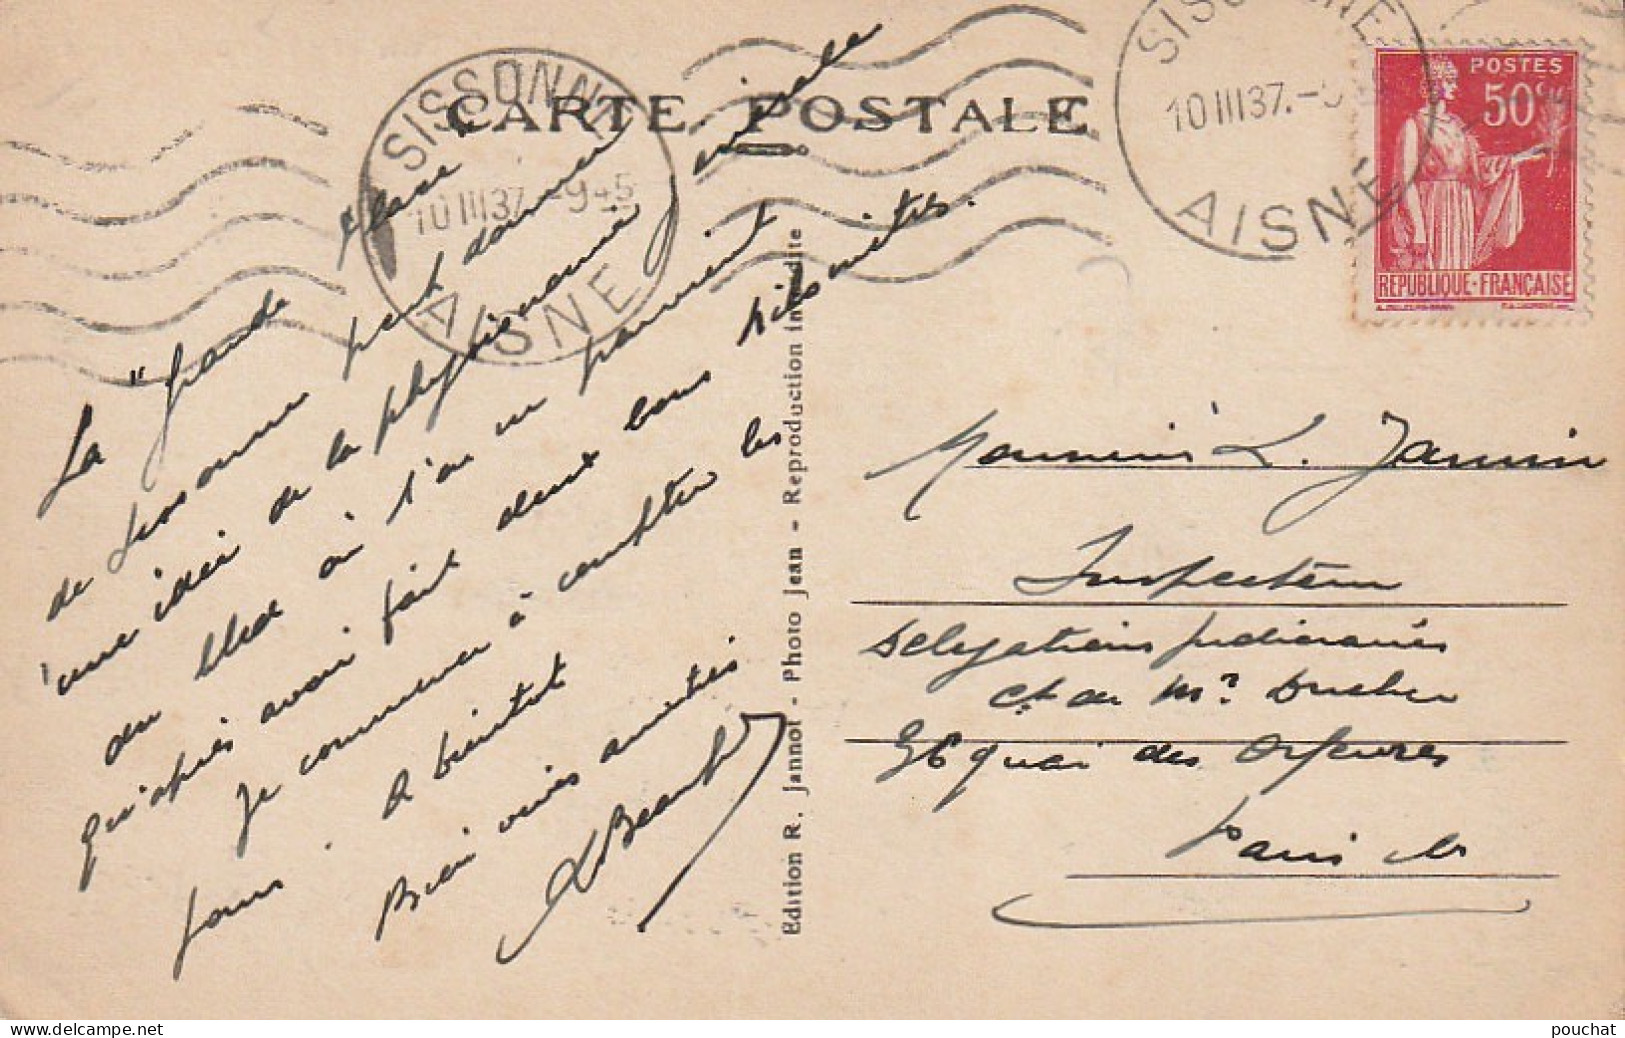 CARTE POSTALE
SISSONNE
10 III 37 - 9 45
AISNE
SISSONNE
10 III 37.-9
AISNE
POSTES
50c
REPUBLIQUE-FRANÇAISE
La "grande place"
de Sissonne peut donner
une idée de la physionomie générale
du bled où l'on ne parvient
qu'après avoir fait deux bons kilomètres.
Je commence à compter les
jours. A bientôt
Bien vives amitiés
Edition R. Jannot - Photo Jean - Reproduction interdite
Monsieur L. Jamin
Inspecteur
Délégations judiciaires
Ct de Mr
36 quai des Orfèvres
Paris
www.delcampe.net
pouchat